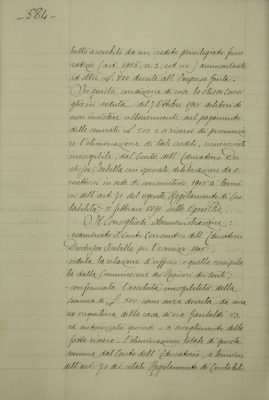 584
tutto assorbiti da un credito privilegiato
(art. 1956, n. 2, cod. civ.) ammontante
ad oltre L. 800 dovute all'
In questa condizione di cose lo stesso Consi-
glio in seduta del 7 Ottobre 1911 deliberò di
non insistere ulteriormente nel pagamento
delle controvate L. 500 e si riservò di pronunziar
e l'eliminazione di tale credito, riconosciuto
inesigibile, dal Conto dell'Educatorio Du-
chessa Isabella con speciale deliberazione da e-
mettersi in sede di consuntivo 1910 a' termi-
ni dell'art. 70 del vigente Regolamento di Con-
tabilità 5 febbraio 1891 sulle Opere Pie.
Il Consiglio di Amministrazione:
- esaminato il Conto Consuntivo dell'Educatorio
Duchessa Isabella per l'esercizio 1910
- veduta la relazione d'ufficio e quella compila-
ta dalla Commissione dei Revisori dei Conti;
- confermata l'assoluta inesigibilità della
somma di L. 500 come sopra dovuta, da una
ex inquilina della casa di via Garibaldi
ed autorizzata quindi - a scioglimento della
fatta riserva - l'eliminazione totale di quella
somma dal Conto dell'Educatorio, a termini
dell'art. 70 del citato Regolamento di Contabili-